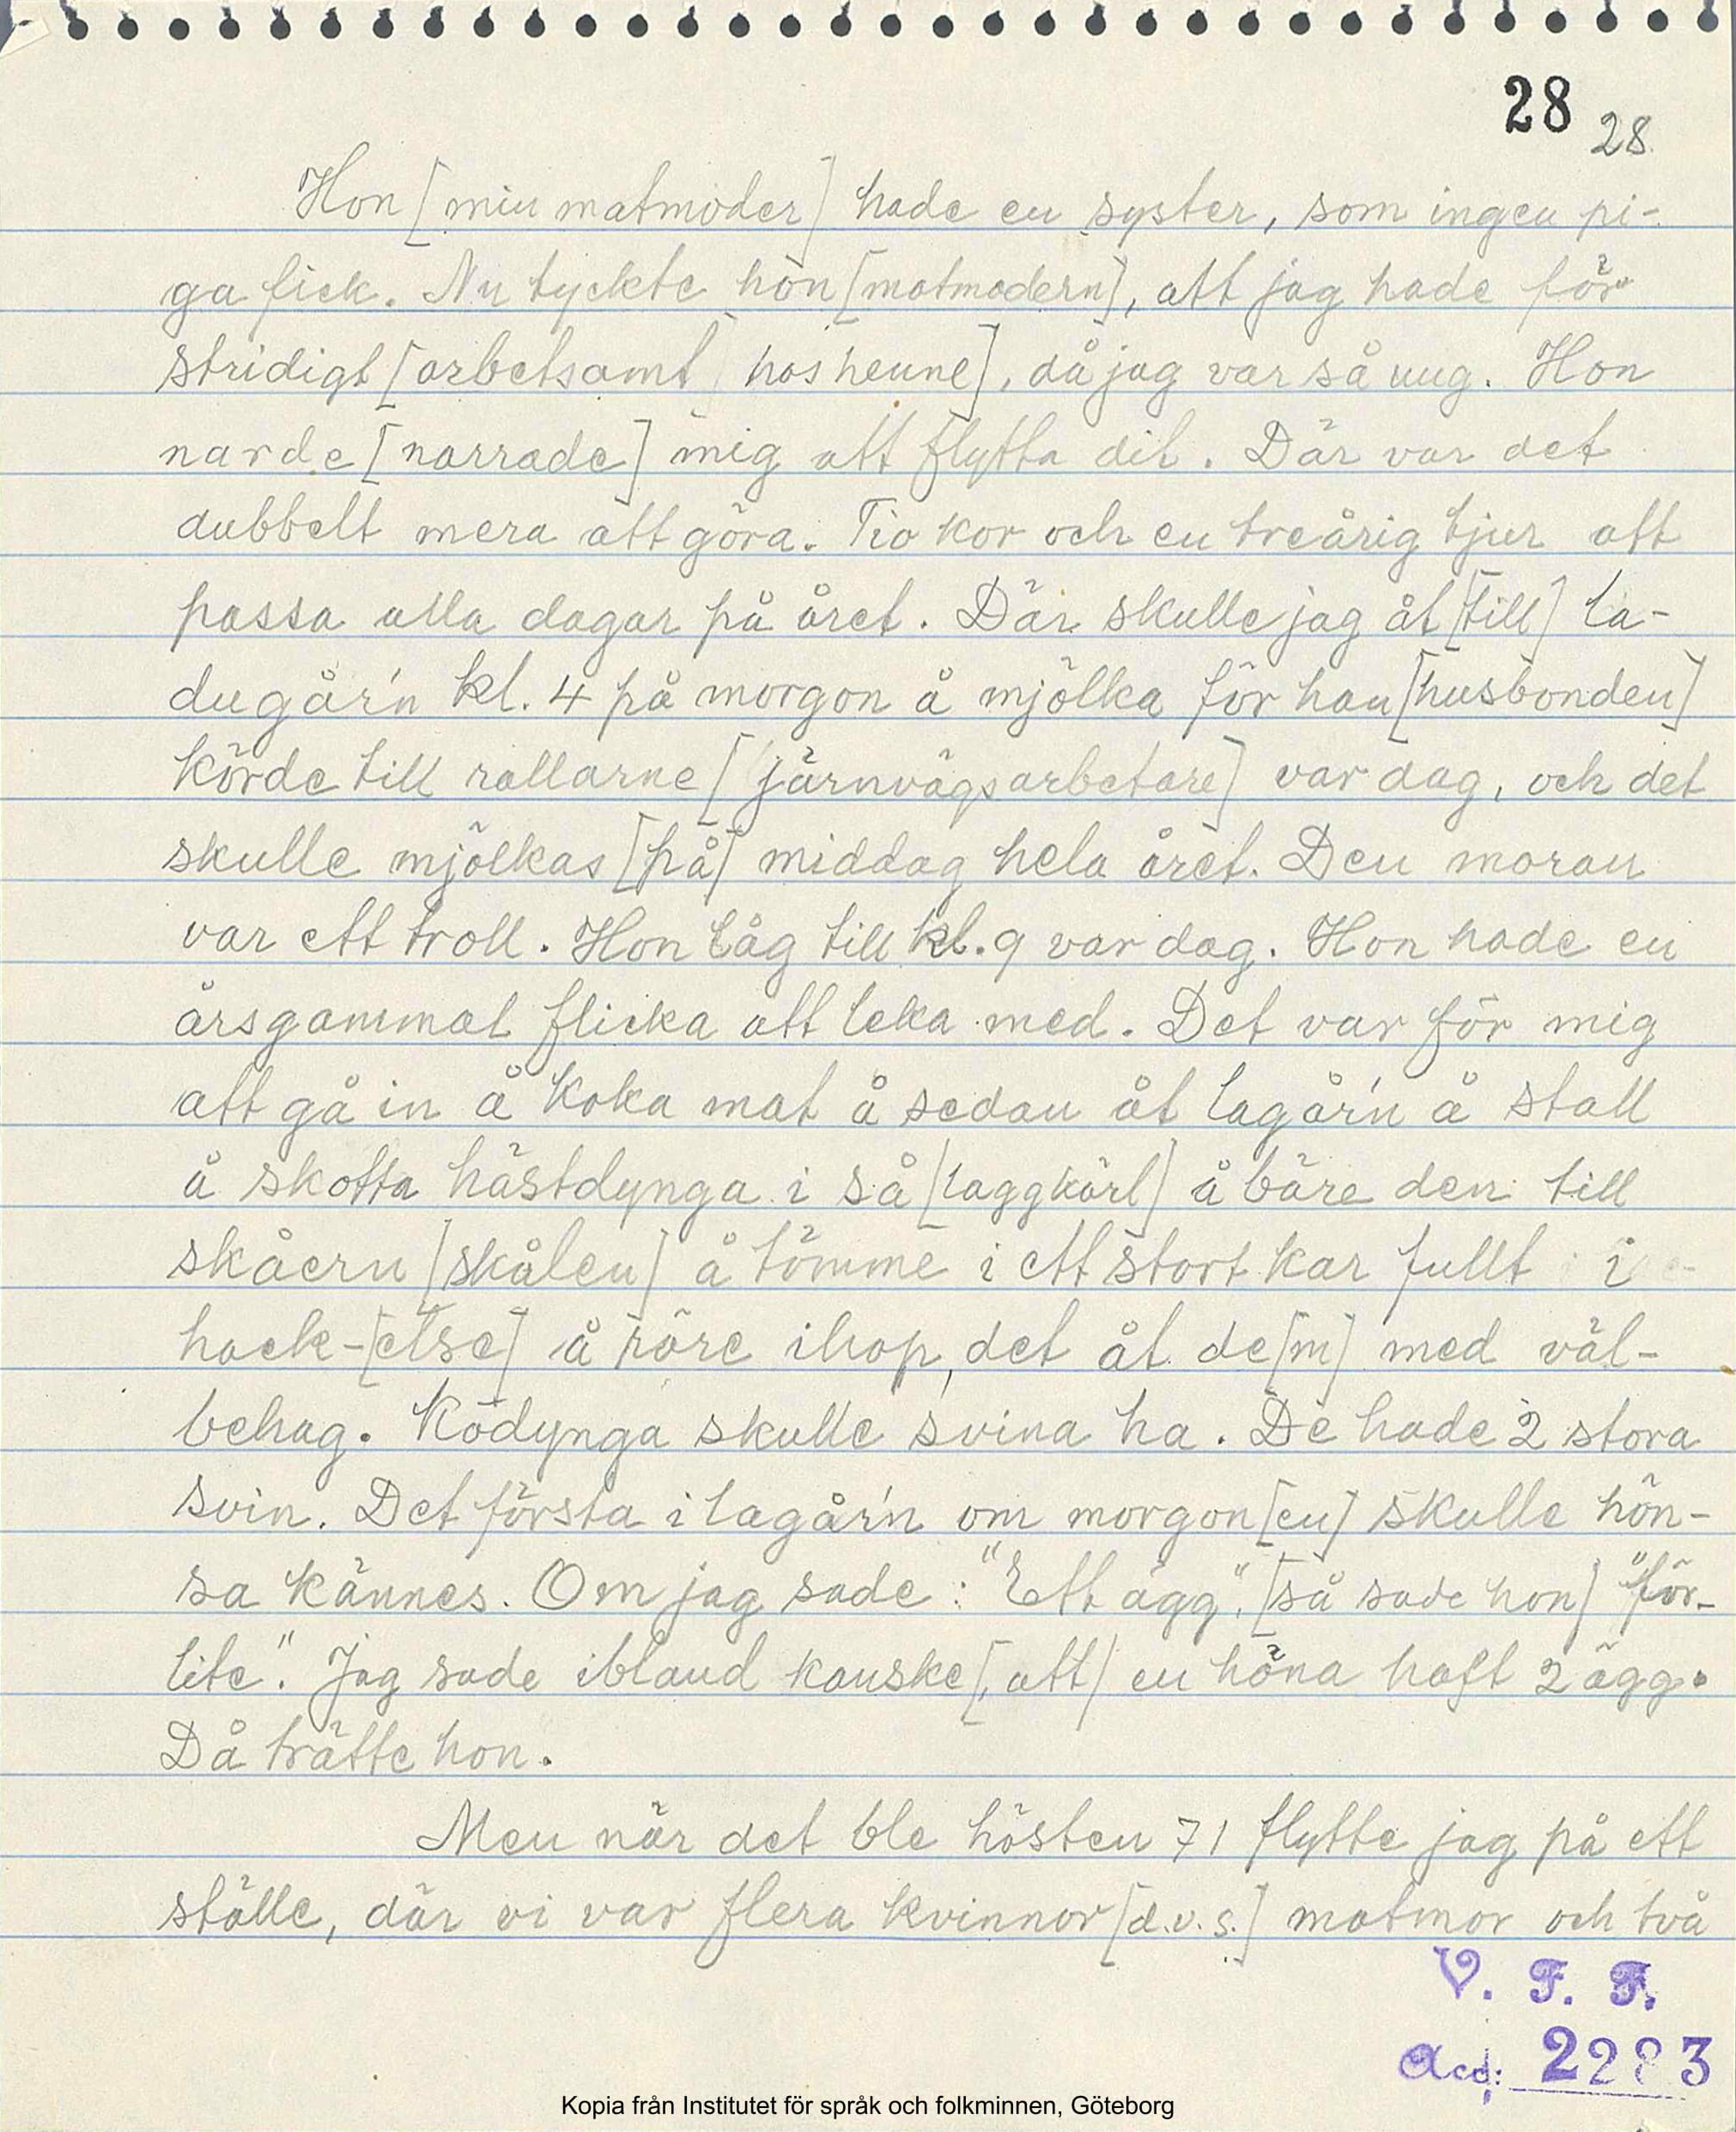 28 28.
Hon [min matmoder] hade en syster, som ingen pi-
ga fick. Nu tyckte hon [matmodern], att jag hade för
stridigt [arbetsamt hos henne], då jag var så ung. Hon
narde [narrade] mig att flytta dit. Där var det
dubbelt mera att göra. Tio kor och en treårig tjur att
passa alla dagar på året. Där skulle jag åt [till] la-
dugår'n kl. 4 på morgon å mjölka för han [husbonden]
körde till rallarne [järnvägsarbetare] var dag, och det
skulle mjölkas [på] middag hela året. Den moran
var ett troll. Hon låg till kl. 9 var dag. Hon hade en
årsgammal flicka att leka med. Det var för mig
att gå in å koka mat å sedan åt lagår'n å stall
å skotta hästdynga i så [laggkärl] å bäre den till
skåern [skålen] å tömme i ett stort kar fullt i
hack-[else] å röre ihop, det åt de[m] med väl-
behag. Kodynga skulle svina ha. De hade 2 stora
svin. Det första i lagår'n om morgon[en] skulle hön-
sa kännes. Om jag sade: "Ett ägg". [så sade hon] "för-
lite". Jag sade ibland kanske [, att] en höna haft 2 ägg.
Då trätte hon.
Men när det ble hösten 71 flytte jag på ett
ställe, där vi var flera kvinnor [d.v.s.] matmor och två
V. F. F.
Acc: 2283
Kopia från Institutet för språk och folkminnen, Göteborg